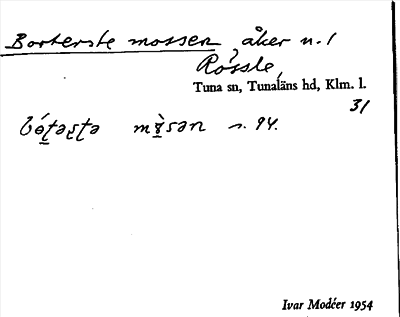 Borterste mossen, åker n. 1
Rössle,
Tuna sn, Tunaläns hd, Klm. l.
31
s. 94.
Ivar Modéer 1954